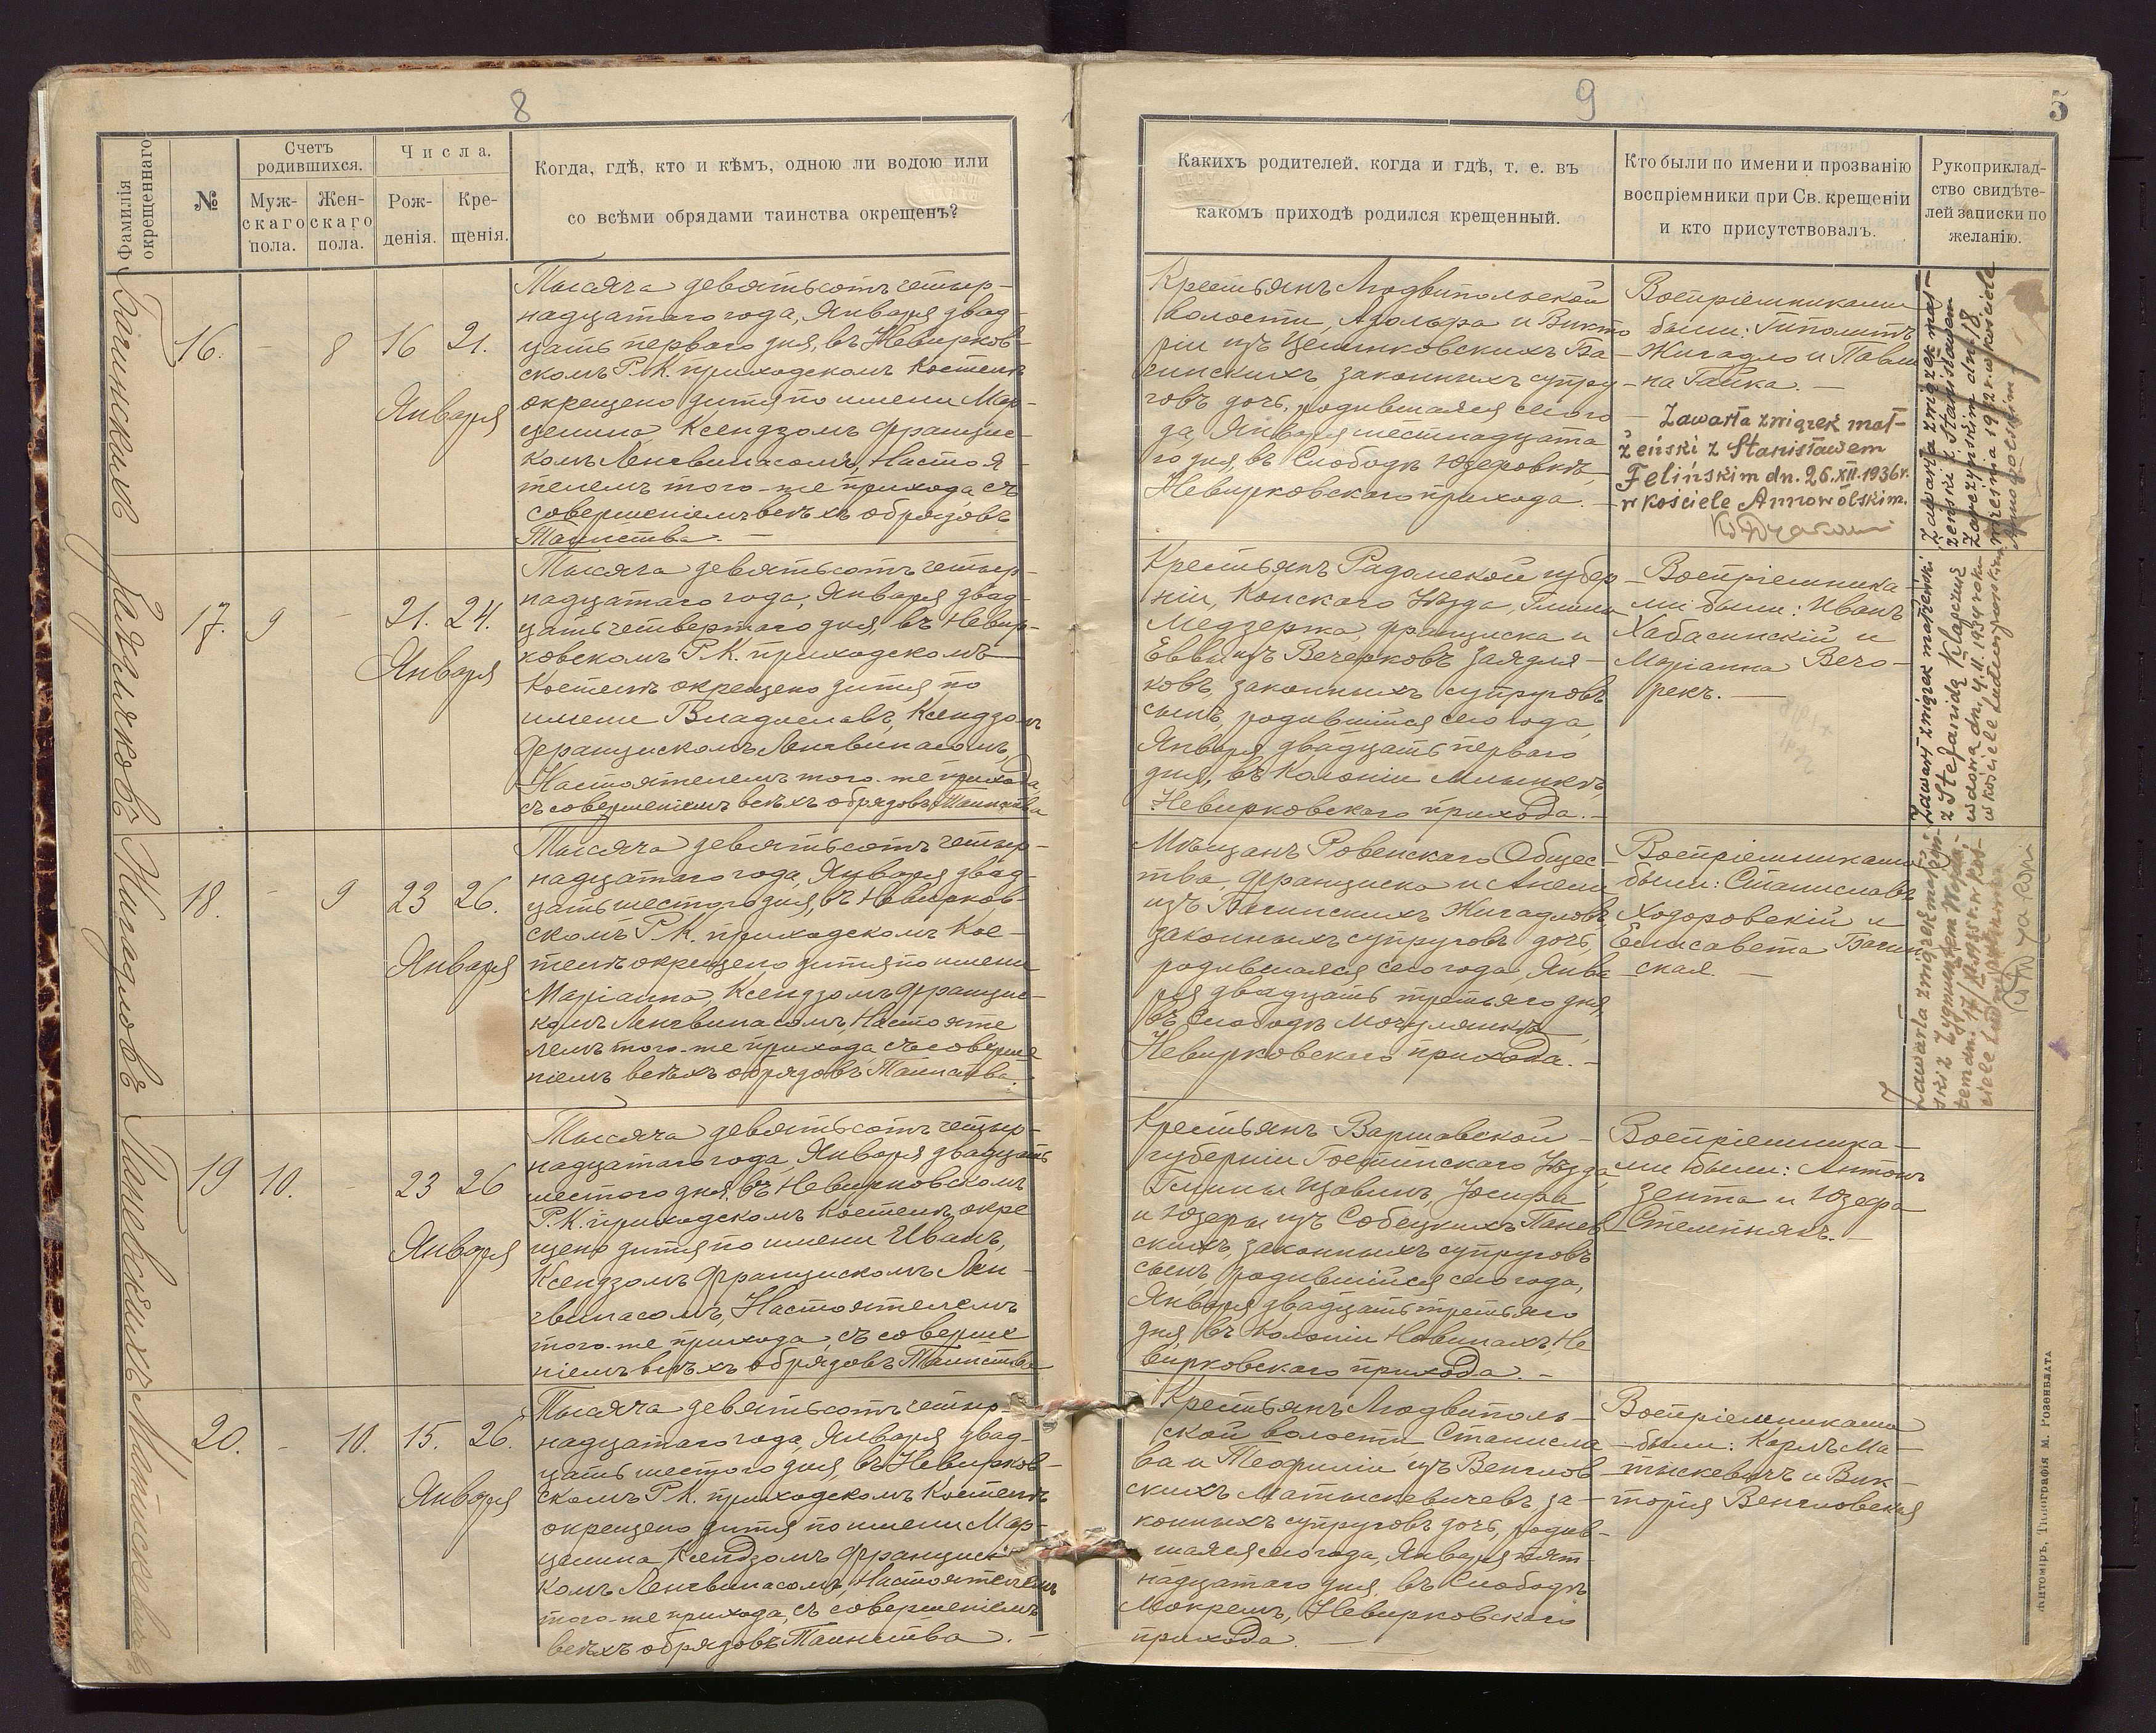 8
Фамилія окрещеннаго
№
Счетъ родившихся.
Муж-
скаго
пола.
Жен-
скаго
пола.
Числа.
Рож-
денія.
Кре-
щенія.
Когда, гдѣ, кто и кѣмъ, одною ли водою или
со всѣми обрядами таинства окрещенъ?
Багинскихъ
16.
-
8
16
21.
Января
Тысяча девятьсотъ четыр-
надцатаго года, Января двад-
цать перваго дня, въ Невирков-
скомъ Р. К. приходскомъ Костелѣ
окрещено дитя по имени Мар-
целина, Ксендзомъ Францис-
комъ Ленгвинасомъ, Настоя-
телемъ того-же прихода съ
совершеніемъ всѣхъ обрядовъ
Таинства. -
Заядляковъ
17.
9
-
21.
24.
Января
Тысяча девятьсотъ четыр-
надцатаго года, Января двад-
цать четвертаго дня, въ Невир-
ковскомъ Р. К. приходскомъ
Костелѣ окрещено дитя по
имени Владиславъ, Ксендзомъ
Францискомъ Ленгвинасомъ,
Настоятелемъ того-же прихода,
съ совершеніемъ всѣхъ обрядовъ Таинства
Жигадловъ
18.
-
9
23
26.
Января
Тысяча девятьсотъ четыр-
надцатаго года, Января двад-
цать шестого дня, въ Невирков-
скомъ Р. К. приходскомъ Кос-
телѣ окрещено дитя по имени
Маріанна, Ксендзомъ Францис-
комъ Ленгвинасомъ, Настояте
лемъ того-же прихода съ соверше
ніемъ всѣхъ обрядовъ Таинства.
Паневскихъ
19
10.
-
23
26
Января
Тысяча девятьсотъ четыр-
надцатаго года, Января двадцать
шестого дня, въ Невирковскомъ
Р. К. приходскомъ Костелѣ окре
щено дитя по имени Иванъ,
Ксендзомъ Францискомъ Лен-
гвинасомъ, Настоятелемъ
того-же прихода, съ соверше
ніемъ всѣхъ обрядовъ Таинства
Матискевичъ
20.
-
10.
15.
26.
Января
Тысяча девятьсотъ четыр-
надцатаго года, Января двад-
цать шестого дня, въ Невирков-
скомъ Р. К. приходскомъ Костелѣ
окрещено дитя по имени Мар-
целина, Ксендзомъ Францис-
комъ Ленгвинасомъ, Настоятелемъ
того-же прихода, съ совершеніемъ
всѣхъ обрядовъ Таинства. -
9
5
Какихъ родителей, когда и гдѣ, т. е. въ
какомъ приходѣ родился крещенный.
Кто были по имени и прозванію
воспріемники при Св. крещеніи
и кто присутствовалъ.
Рукоприклад-
ство свидѣте-
лей записки по
желанію.
Крестьянъ Людвипольской
волости, Адольфа и Викто
ріи изъ Цешиковскихъ Ба-
гинскихъ, законныхъ супру-
говъ дочь, родившаяся сего го
да, Января шестнадцата
го дня, въ Слободѣ Юзефовкѣ,
Невирковскаго прихода. -
Воспріемниками
были: Гиполитъ
Жигадло и Павли
на Гайка. -
Zawarła związek mał-
żeński z Stanisławem
Felińskim dn. 26.XII.1936r.
w kościele Annowolskim.
Крестьянъ Радомской губер-
ніи, Конскаго Уѣзда, Гмины
Медзержа, Франциска и
Еввы изъ Вечерковъ Заядля-
ковъ, законныхъ супруговъ
сынъ, родившійся сего года,
Января двадцать перваго
дня, въ Колоніи Млынкѣ,
Невирковскаго прихода. -
Воспріемника-
ми были: Иванъ
Хабасинскій и
Маріанна Вечо-
рекъ. -
Мѣщанъ Ровенскаго Общес-
тва, Франциска и Анели
изъ Багинскихъ Жигадловъ,
законныхъ супруговъ дочь,
родившаяся сего года, Янва
ря двадцать третьяго дня,
въ Слободѣ Мочулянкѣ,
Невирковскаго прихода. -
Воспріемниками
были: Станиславъ
Ходоровскій и
Елисавета Багин
ская. -
Крестьянъ Варшавской -
губерніи Гостинскаго Уѣзда,
Гмины Щавинъ, Іосифа
и Юзефы изъ Собецкихъ Панев
скихъ, законныхъ супруговъ
сынъ, родившійся сего года,
Января двадцать третьяго
дня, въ Колоніи Новинахъ, Не
вирковскаго прихода. -
Воспріемника-
ми были: Антонъ
Зента и Юзефа
Стемпнякъ. -
Крестьянъ Людвиполь-
ской волости Станисла
ва и Теофиліи изъ Венглов-
скихъ Матыскевичевъ, за-
конныхъ супруговъ дочь, родив-
шаяся сего года, Января пят-
надцатаго дня, въ Слободѣ
Мокремъ, Невирковскаго
прихода. -
Воспріемниками
были: Карлъ Ма-
тыскевичъ и Вик-
торія Венгловская
Zawarła związek mał-
żeński z Stanisławem
dn. 18
września 1932 r. w kościele
Zawarł związek małżeński
z Stefanidą
wdową dn. 4.II.1939 roku
w kościele Ludwipolskim
Zawarła związek małżeń-
ski z Zygmuntem
Житоміръ, Типографія М. Розенблата